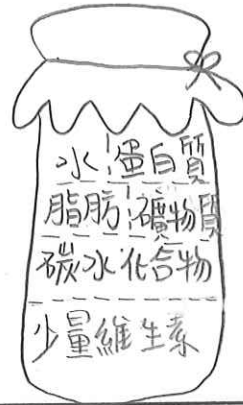 水 蛋白質
脂肪 礦物質
碳水化合物
少量維生素